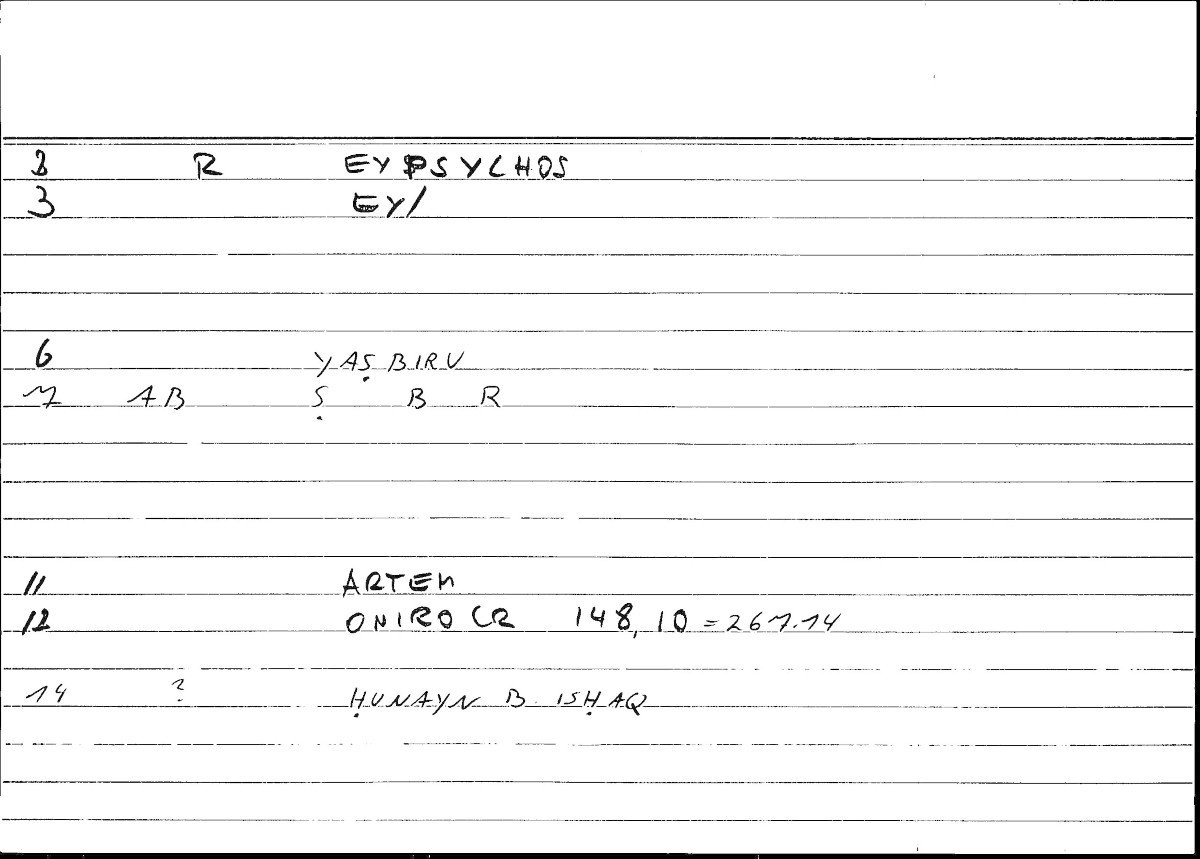 2 R EYPSYCHOS
3 EY/
6 YAṢBIRU
7 AB Ṣ B R
11 ARTEM
12 ONIROCR 148,10 = 267.14
14 ? ḤUNAYN B. ISḤAQ